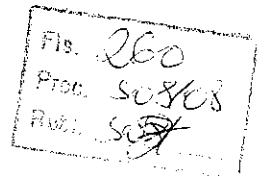 Fls. 260
Proc. 508/08
Rub.